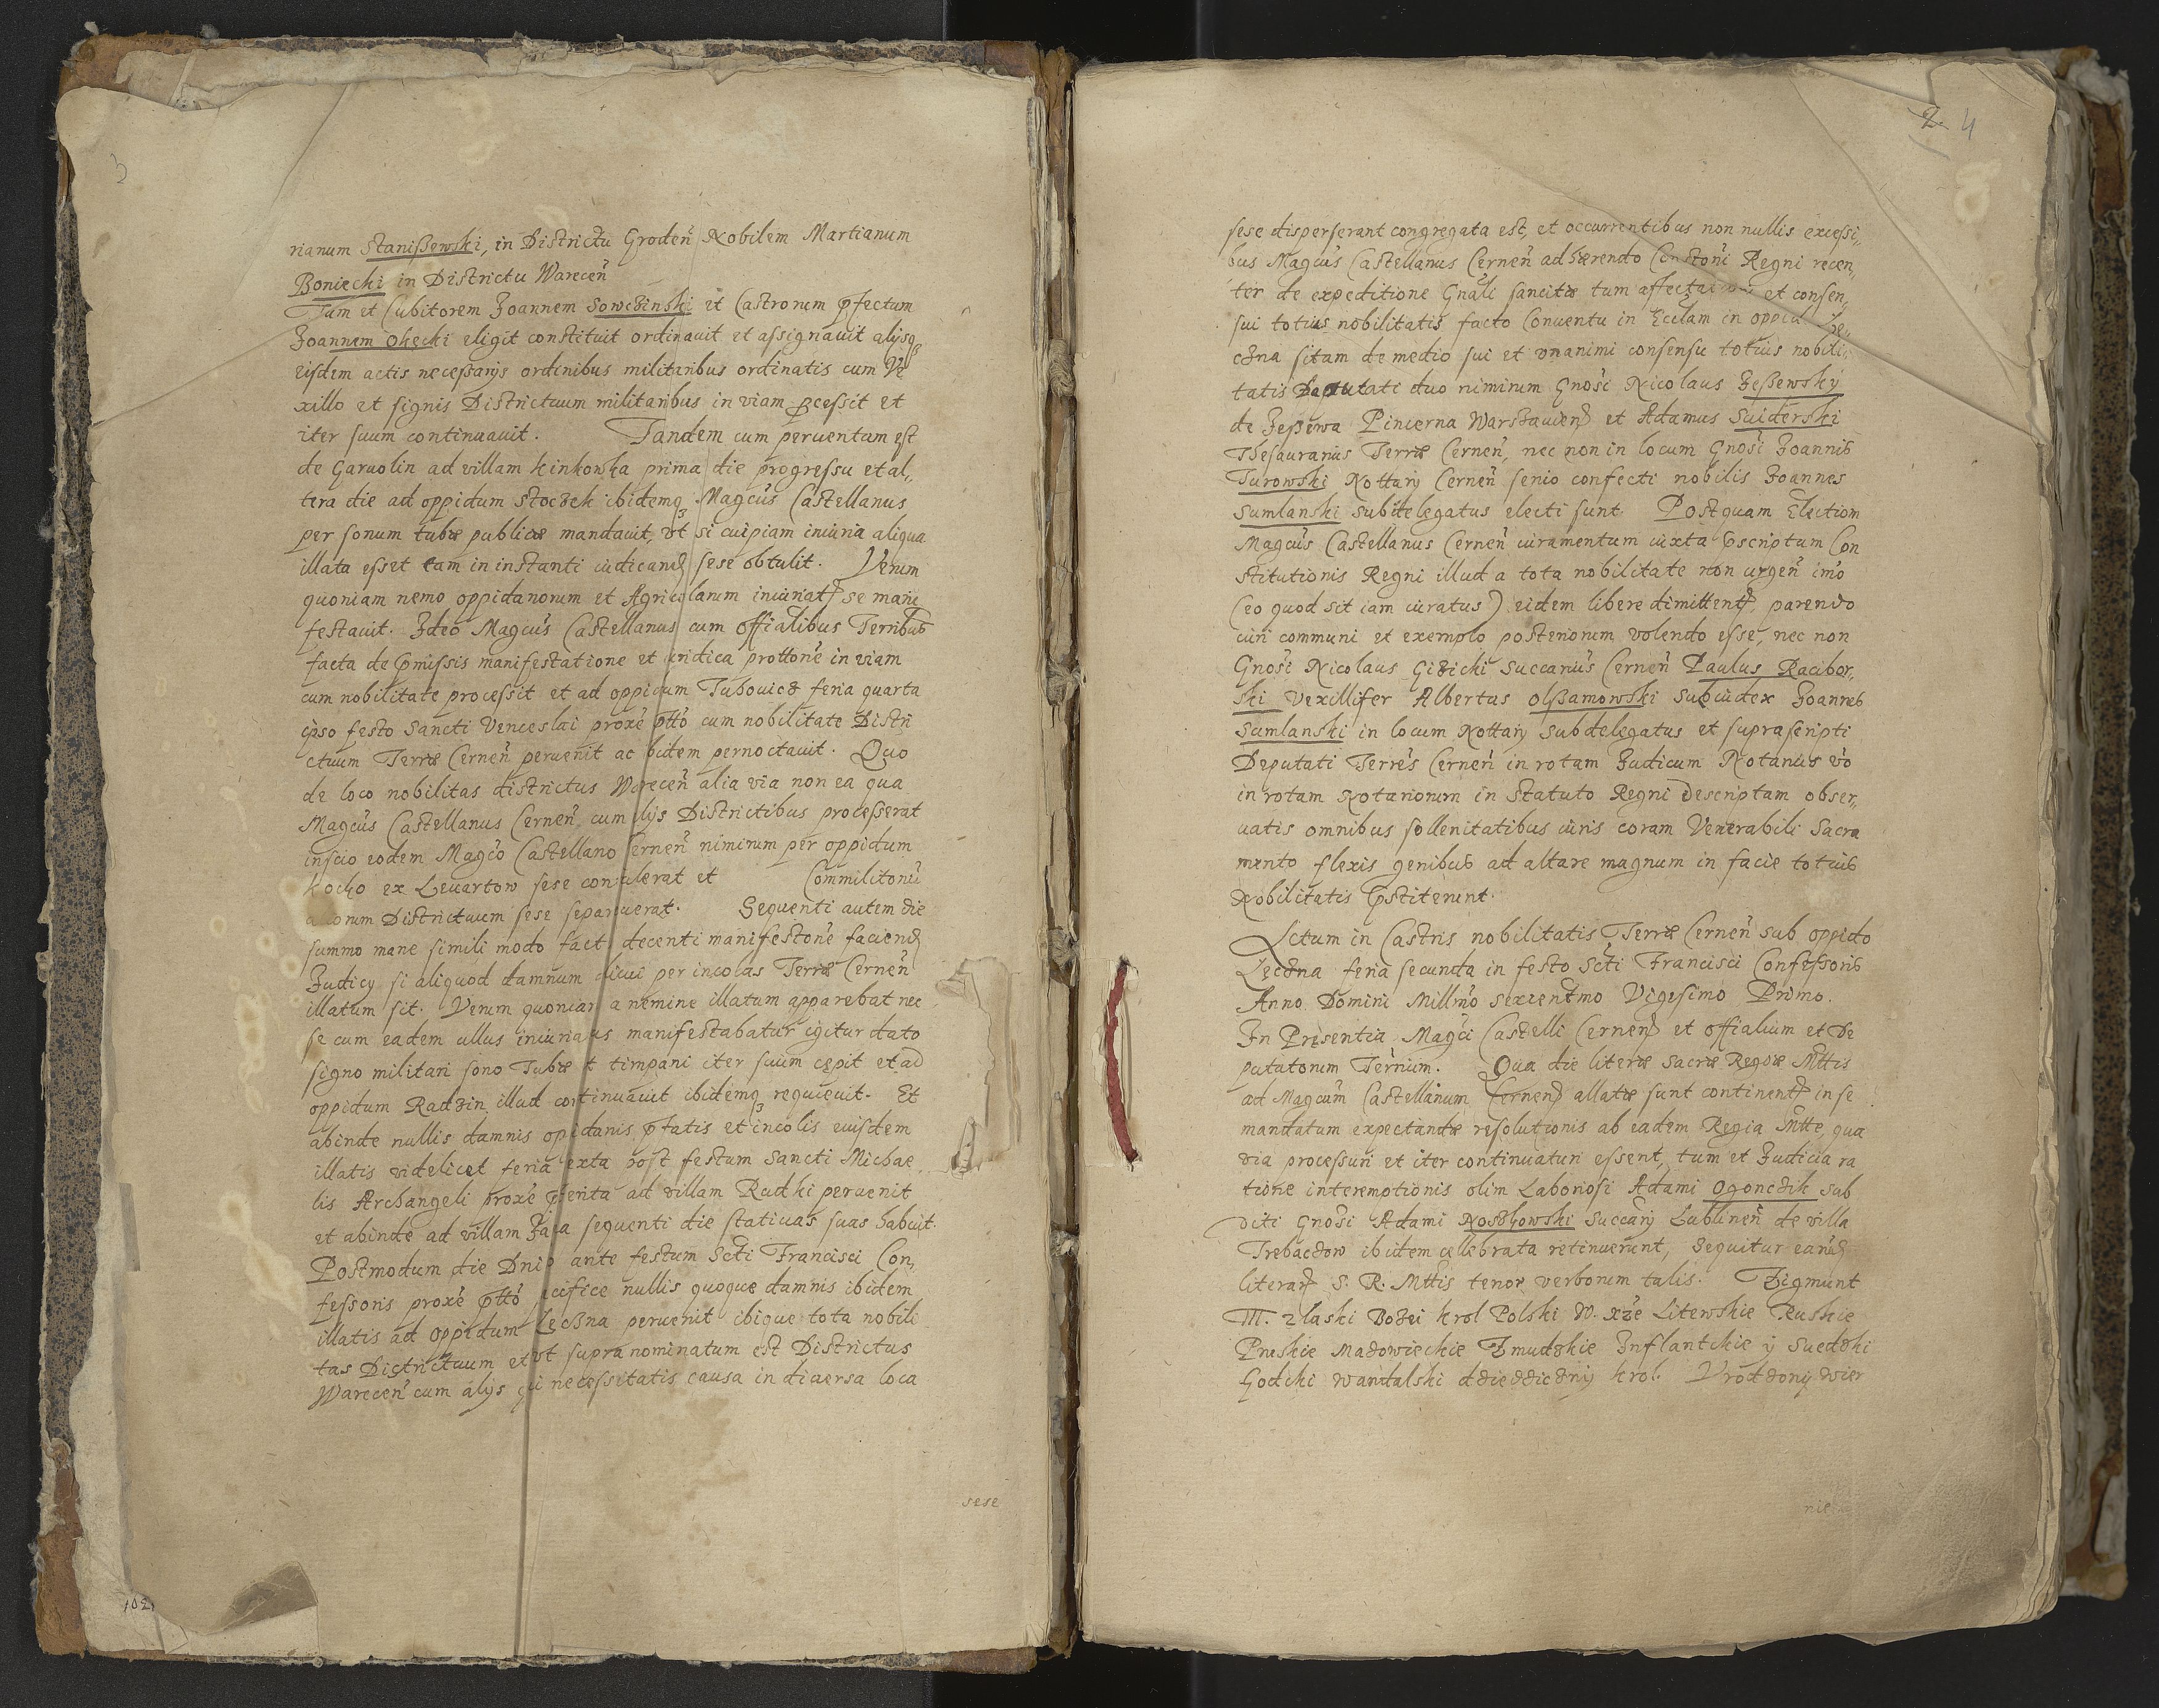 3
rianum Stanißewski, in Districtu Groden Nobilem Martianum
Boniecki in Districtu Warecen
Tum et Cubitorem Joannem Sowczinski et Castrorum pfectum
Joannem Okęcki eligit constituit ordinauit et assignauit alysq
eisdem actis necessarys ordinibus militaribus ordinatis cum Ve
xillo et signis Districtuum militaribus in viam pcessit et
iter suum continuauit. Tandem cum peruentum est
de Garuolin ad villam kinkowka prima die progressu et al„
tera die ad oppidum Stoczek ibidemq Magcus Castellanus
per sonum tubæ publicæ mandauit, vt si cuipiam iniuria aliqua
illata esset eam in instanti iudicand sese obtulit. Verum
quoniam nemo oppidanorum et Agricolarum iniuriat se mani
festauit. Ideo Magcus Castellanus cum offialibus Terribus
facta de pmissis manifestatione et iuridica prottone in viam
cum nobilitate processit et ad oppidum Tubouicz feria quarta
ipso festo Sancti Venceslai proxe ptto cum nobilitate Distri
ctuum Terræ Cernen peruenit ac ibidem pernoctauit. Quo
de loco nobilitas districtus Warecen alia via non ea qua
Magcus Castellanus Cernen cum alys Districtibus processerat
inscio eodem Magco Castellano Cernen nimirum per oppidum
Kocko ex Leuartow sese contulerat et Commilitonu
aliorum Districtuum sese separauerat. Sequenti autem die
summo mane simili modo fact decenti manifestone faciend
Iudicy si aliquod damnum alicui per incolas Terræ Cernen
illatum sit. Verum quoniam a nemine illatum apparebat nec
se cum eadem ullus iniuriatus manifestabatur igitur dato
signo militari sono Tubæ et timpani iter suum cępit et ad
oppidum Radzin illud continuauit ibidemq requieuit. Et
abinde nullis damnis opidanis ptatis et incolis eiusdem
illatis videlicet feria sexta post festum Sancti Michae
lis Archangeli proxe pterita ad villam Rudki peruenit
et abinde ad villam Zaia sequenti die statiuas suas habuit.
Postmodum die Dnio ante festum Scti Francisci Con„
fessoris proxe ptto pacifice nullis quoque damnis ibidem
illatis ad oppidum Lęczna peruenit ibique tota nobili
tas Districtuum et vt supra nominatum est Districtus
Warecen cum alys qui necessitatis causa in diuersa loca
sese
102.
2. 4
sese disperserant congregata est, et occurrentibus non nullis excessi„
bus Magcus Castellanus Cernen adhærendo Constoni Regni recen„
ter de expeditione Gnali sancitæ tum affectai et consen„
sui totius nobilitatis facto Conuentu in Ecclam in oppid Łe„
czna sitam de medio sui et vnanimi consensu totius nobili„
tatis Deputati duo nimirum Gnosi Nicolaus Zeßewsky
de Zeßewa Pincerna Warszauien et Adamus Suiderski
Thesaurarius Terræ Cernen, nec non in locum Gnosi Joannis
Turowski Nottary Cernen senio confecti nobilis Joannes
Sumlanski subdelegatus electi sunt. Postquam Election
Magcus Castellanus Cernen iuramentum iuxta pscriptum Con
stitutionis Regni illud a tota nobilitate non urgen imo
(eo quod sit iam iuratus) eidem libere dimittent, parendo
iuri communi et exemplo posteriorum volendo esse, nec non
Gnosi Nicolaus Gizicki Succarius Cernen Paulus Racibor„
ski Vexillifer Albertus Olßamowski Subiudex Joannes
Sumlanski in locum Nottary Subdelegatus et suprascripti
Deputati Terres Cernen in rotam Iudicum Notarius vo
in rotam Notariorum in Statuto Regni descriptam obser„
uatis omnibus sollenitatibus iuris coram Venerabili Sacra
mento flexis genibus ad altare magnum in facie totius
Nobilitatis pstiterunt.
Actum in Castris nobilitatis Terræ Cernen sub oppido
Lęczna feria secunda in festo Scti Francisci Confessoris
Anno Domini Millmo sexcentmo Vigesimo Primo.
In Presentia Magci Castelli Cernen et offialium et De
putatorum Terrium. Qua die literæ Sacræ Regiæ Mttis
ad Magcum Castellanum Cernen allatæ sunt continent in se
mandatum expectandæ resolutionis ab eadem Regia Mtte, qua
via processuri et iter continuaturi essent, tum et Iudicia ra
tione interemptionis olim Laboriosi Adami Ogonczik sub
diti Gnosi Adami Noskowski Succary Lublinen de villa
Trebaczow ibidem cęlebrata retinuerunt, sequitur earud
literar S. R. Mttis tenor verborum talis. Zigmunt
III. z laski Bozei krol Polski W. xze Litewskie Ruskie
Pruskie Mazowieckie Zmudzkie Inflantckie y Suedzki
Godcki wandalski dziedziczny krol. Vrodzony wier
nie